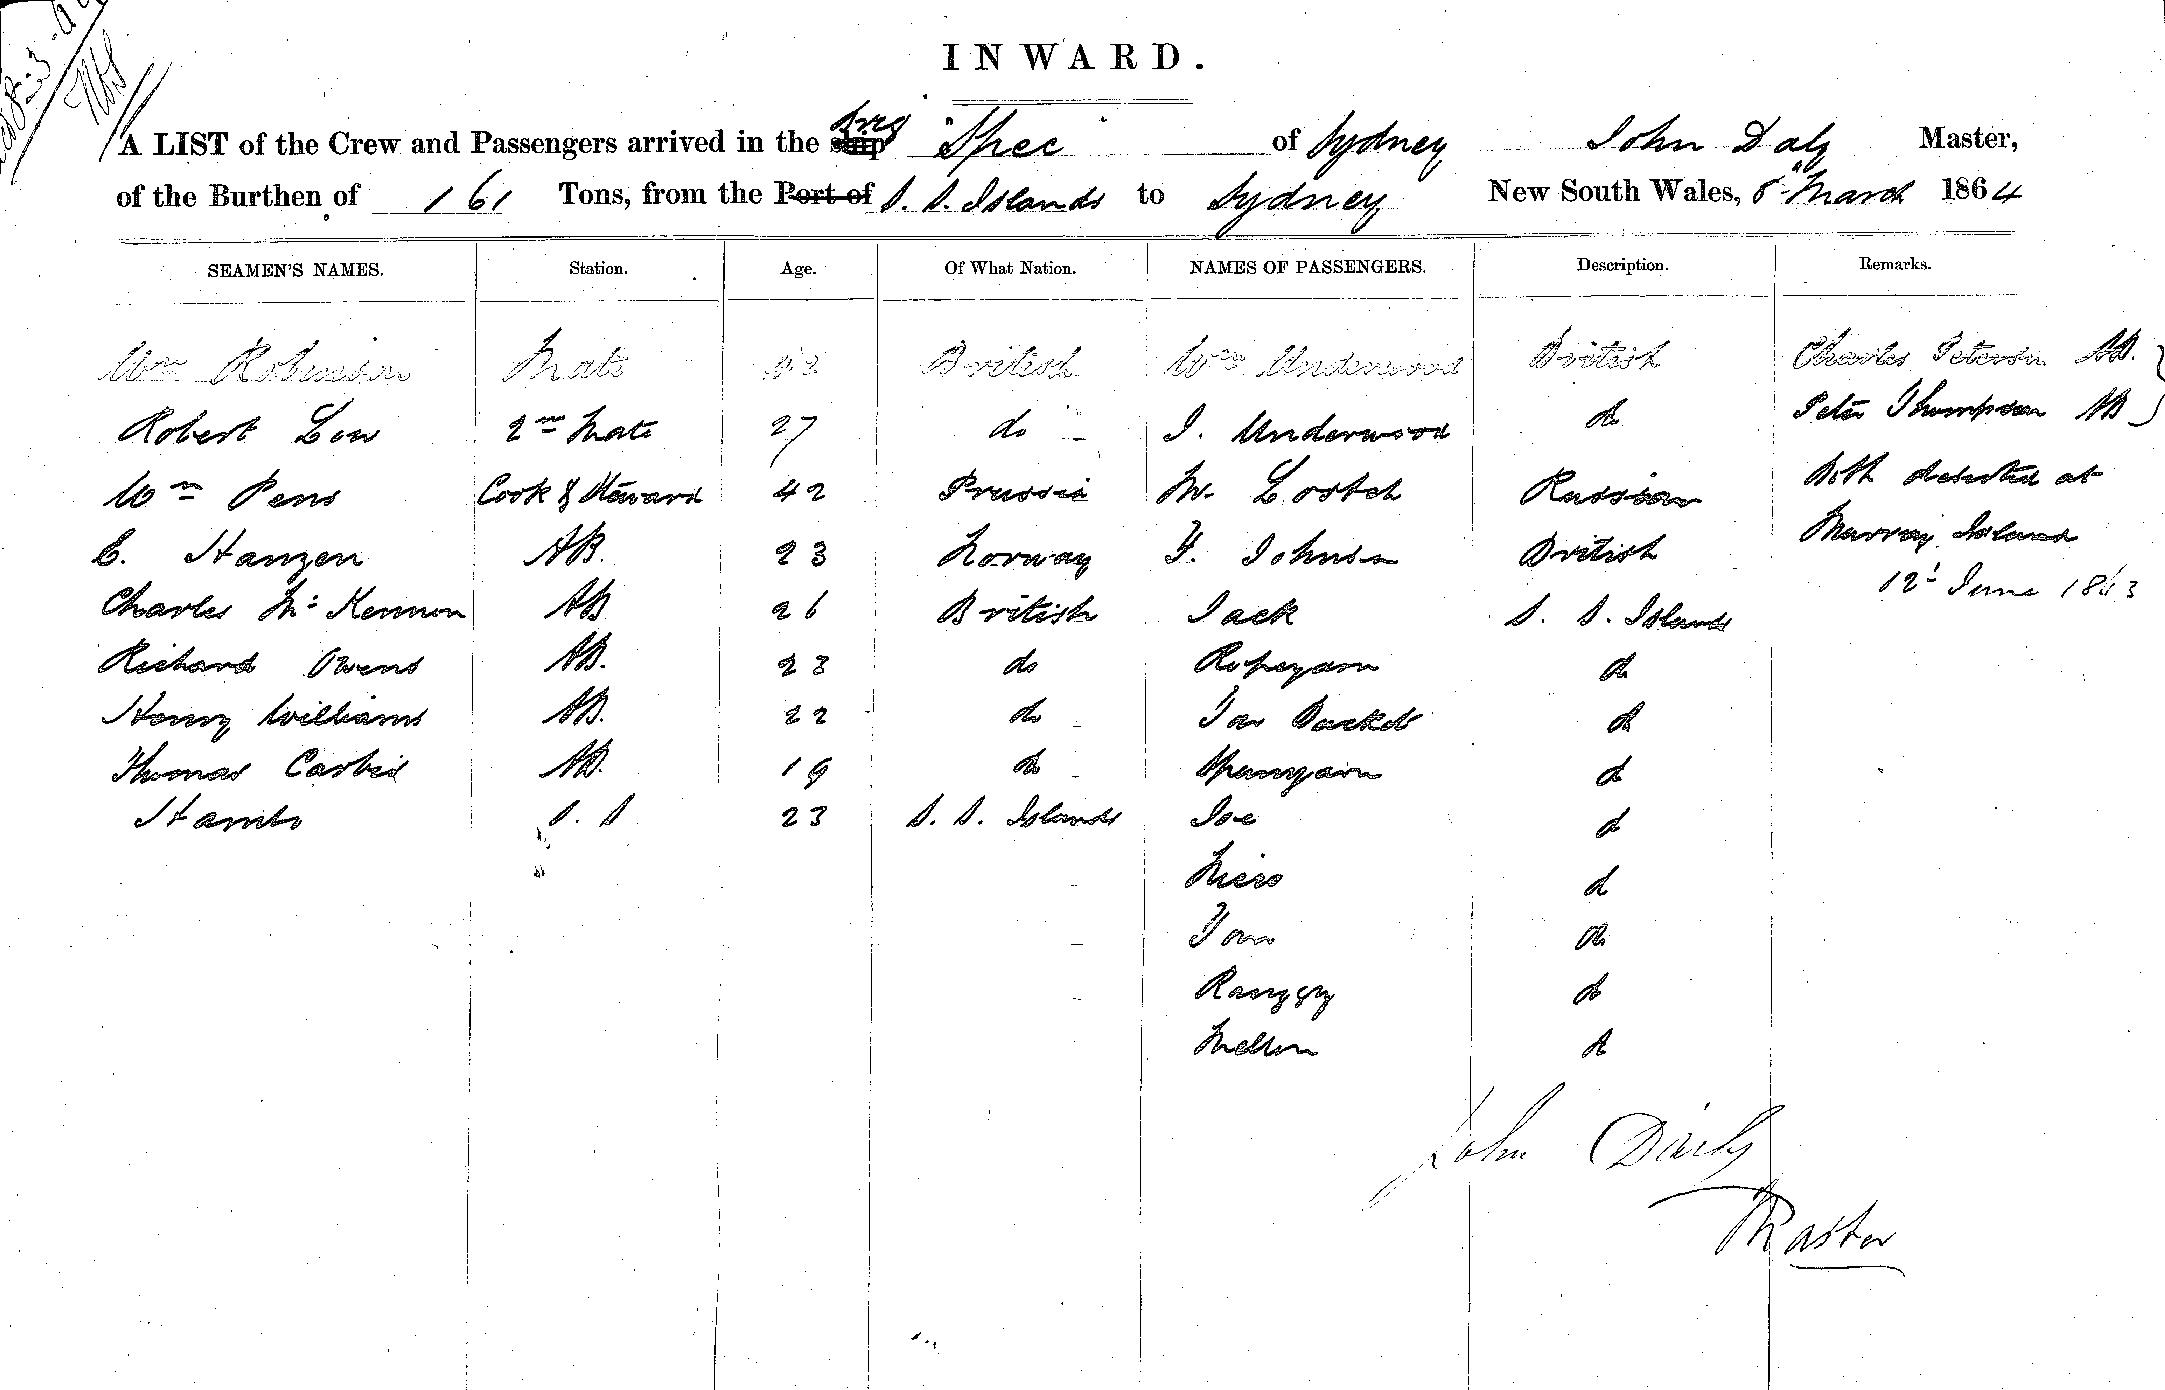 INWARD.
A LIST of the Crew and Passengers arrived in the Brig "Spec" of Sydney John Daly Master,
of the Burthen of 161 Tons, from the Port of S. S. Islands to Sydney New South Wales, March 1864
SEAMEN'S NAMES. Station. Age. Of What Nation. NAMES OF PASSENGERS. Description. Remarks.
Wm Robinson Mate British Wm Underwood British Charles Peterson AB.
Robert Low 2nd Mate 27 do J. Underwood do Peter Thompson AB
Wm Pens Cook & Steward 42 Prussia M. Russian Both deserted at
C. Hanzen AB. 23 Norway F. Johnson British Murray Island
Charles Mc Kennon AB 26 British Jack S. S. Islands 12th June 1863
Richard Owens AB. 23 do Ropeyarn do
Henry Williams AB. 22 do Tar Bucket do
Thomas AB. 19 do Spunyarn do
Hambo S. S 23 S. S. Islands Joe do
do
Tom do
do
do
John Daily
Master